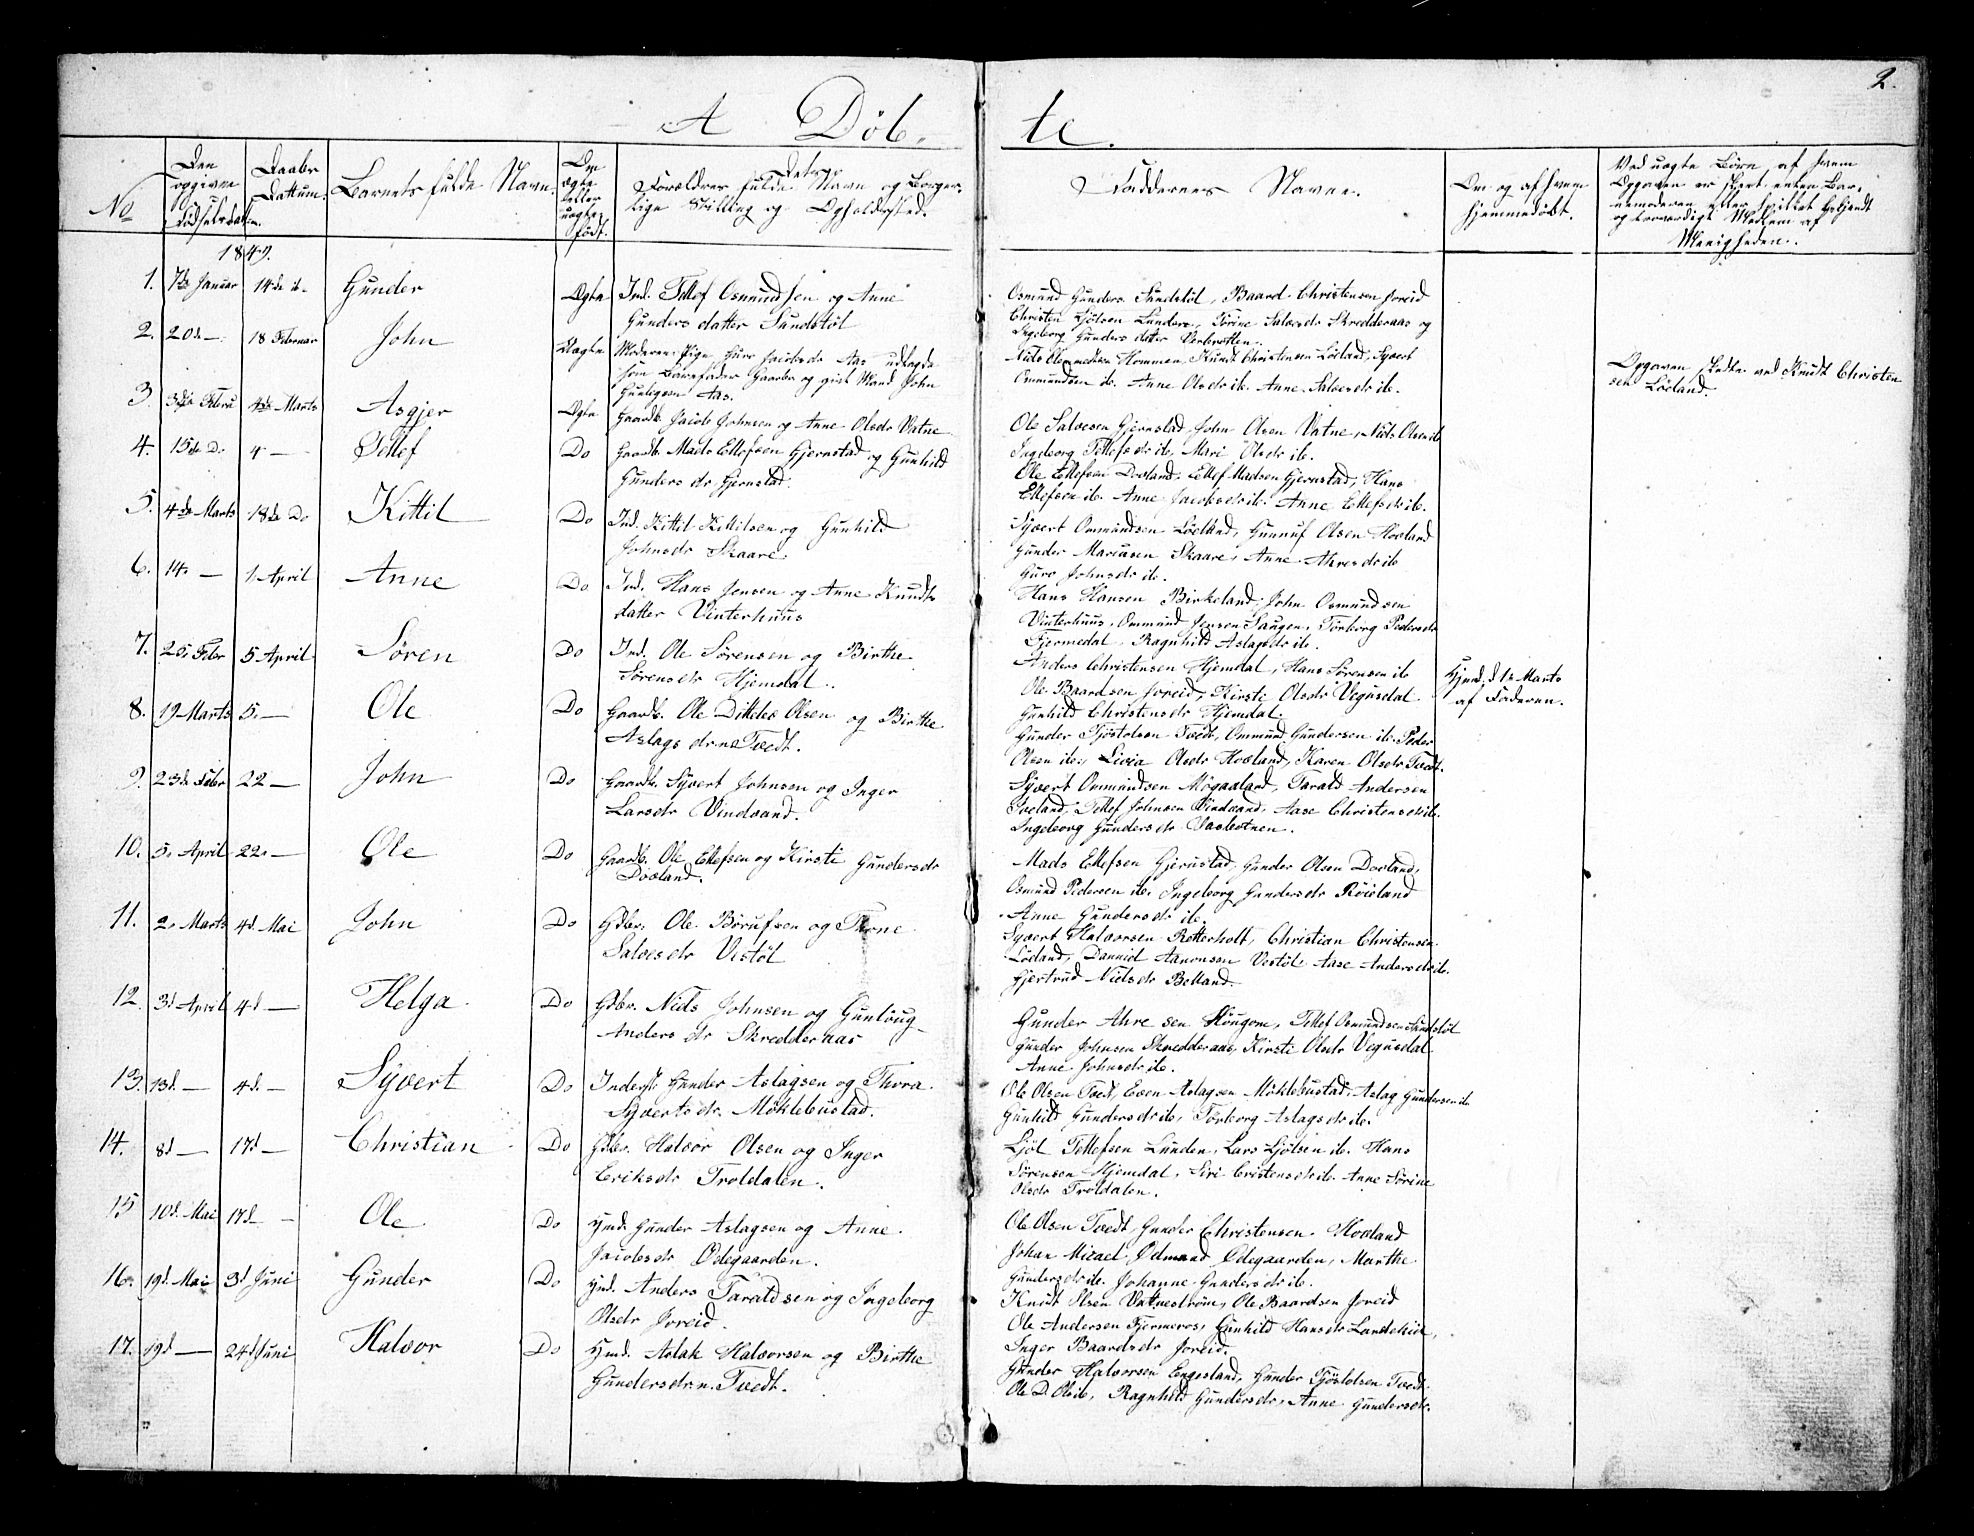 2.
A Döb- te.
No
Den opgivne Fødselsdatum.
Daabs Dattum.
Barnets fulde Navn.
Om ægte eller uægte født.
Forældres fulde Navn og Borger-
lige Stilling og Opholdssted.
Faddernes Navne.
Om og af hvem
hjemmedøbt.
Ved uægte Børn, af hvem
Opgaven er skeet, enten Bar-
nemoderen eller hvilket bekjendt
og troværdigt Medlem af
Menigheden.
1849.
1. 7de Januar 14de ib. Gunder Ægte Ind. Tellef Osmundsen og Anne
Gundersdatter Sundstöl
Osmund Gunders. Sundstöl, Baard Christensen Joreid
Christen Ljölsen Lunden, Torine Salvesdr Skredderaas og
Ingeborg Gundersdatter Verbrotten.
2. 20de — 18 Februar John Uægte Moderen: Pige Guro Jacobsdr Aas, udlagde
som Barnefader Gaardbr og gift Mand John
Gunligsen Aas.
Niels Ommundsen Hommen, Knudt Christensen Löeland, Syvert
Ommundsen ib. Anne Olsdr ib. Anne Salvesdr ib.
Opgaven skedte ved Knudt Christen
sen Löeland.
3. 3die Febru 4de Marts Asgjer Ægte Gaardb. Jacob Johnsen og Anne Olsdr Vatne
Ole Salvesen Gjernstad, John Olsen Vatne, Niels Olsen ib
Ingeborg Tellefsdr ib. Mari Olsdr ib.
4. 15de Do 4 — Tellef Do Gaardb. Mads Ellefsen Gjernstad og Gunhild
Gundersdr Gjernstad.
Ole Ellefsen Dovland, Ellef Madsen Gjernstad, Hans
Ellefsen ib. Anne Jacobsdr ib. Anne Ellefsdr ib.
5. 4de Marts 18de Do Kittil Do Ind. Kittil Kittilsen og Gunhild
Johnsdr Skaare.
Syvert Ommundsen Löeland, Gunnuf Olsen Hovland
Gunder Mariusen Skaare, Anne Ahresdr ib
Guro Johnsdr ib.
6. 14. — 1. April Anne Do Ind. Hans Jensen og Anne Knudts
datter Vinterhuus
Hans Hansen Birkeland, John Osmundsen
Vinterhuus, Ommund Jensen Saugen, Torborg Pedersdr
Fjermedal, Ragnhild Aslagsdr ib.
7. 25. Febr 5 April Sören Do Ind. Ole Sörensen og Birthe
Sörensdr Hjemdal.
Anders Christensen Hjemdal, Hans Sörensen ib
Ole Baardsen Joreid, Kirsti Olsdr Vegusdal
Gunhild Christensdr Hjemdal.
Hjmd. d 1ste Marts
af Faderen.
8. 19 Marts 5. — Ole Do Gaardb. Ole Ditlev Olsen og Birthe
Aslagsdr. n. Tvedt.
Gunder Tjöstolsen Tvedt, Ommund Gundersen ib. Peder
Olsen ib., Livia Olsdr Hovland, Karen Olsdr Tvedt.
9. 23de Febr 22 — John Do Gaardb. Syvert Johnsen og Inger
Larsdr Vindsand.
Syvert Ommundsen Mögaaland, Tarald Andersen
Soeland, Tellef Johnsen Vindsand, Aase Christensdr ib.
Ingeborg Gundersdr Vasbotnen.
10. 5. April 22. — Ole Do Gaardb. Ole Ellefsen og Kirsti Gundersdr
Dovland.
Mads Ellefsen Gjernstad, Gunder Olsen Dovland,
Osmund Pedersen ib. Ingeborg Gundersdr Röiseland
Anne Gundersdr ib.
11. 2. Marts 4d. Mai John Do Gdbr. Ole Börufsen og Thone
Salvesdr Vestöl
Syvert Halvorsen Retterholt, Christian Christensen
Löeland, Danniel Aanonsen Vestöl, Aase Andersdr ib.
Gjertrud Nielsdr Belland.
12. 3d April 4d — Helga. Do Gdbr. Niels Johnsen og Gunloug
Andersdr Skredderaas
Gunder Ahresen Hougom, Tellef Osmundsen Sundstöl
Gunder Johnsen Skredderaas, Kirsti Olsdr Vegusdal
Anne Johnsdr ib.
13. 13d. — 4d. — Syvert Do Inderst. Gunder Aslagsen og Thora
Syvertsdr. Möklebustad.
Ole Olsen Tvedt, Even Aslagsen Möklebustad, Aslag Gundersen ib
Gunhild Gundersdr ib, Torborg Aslagsdr ib.
14. 8d — 17d — Christian Do Gdbr. Halvor Olsen og Inger
Eriksdr Troldalen.
Ljöl Tellefsen Lunden, Lars Ljölsen ib. Hans
Sörensen Hjemdal, Siri Cristensdr ib. Anne Sörine
Olsdr Troldalen.
15 10d. Mai 17d — Ole Do Hmd. Gunder Aslagsen og Anne
Jacobsdr Ödegaarden.
Ole Olsen Tvedt, Gunder Christensen Hovland
Johan Micael Ödmund Ödegaarden, Marthe
Gundersdr ib. Johanne Gundersdr ib.
16. 19d. Mai 3d Juni Gunder Do Hmd. Anders Taraldsen og Ingeborg
Olsdr Joreid.
Knud Olsen Vatneström, Ole Baardsen Joreid
Ole Andersen Fjermeros, Gunhild Hansdr
Inger Baardsdr Joreid.
17. 19d — 24d Juni Halvor Do Hmd. Aslak Halvorsen og Birthe
Gundersdr. n. Tvedt.
Gunder Halvorsen Engesland, Gunder Tjöstolsen Tvedt
Ole D. Ols ib, Ragnhild Gundersdr, Anne Gundersdr.